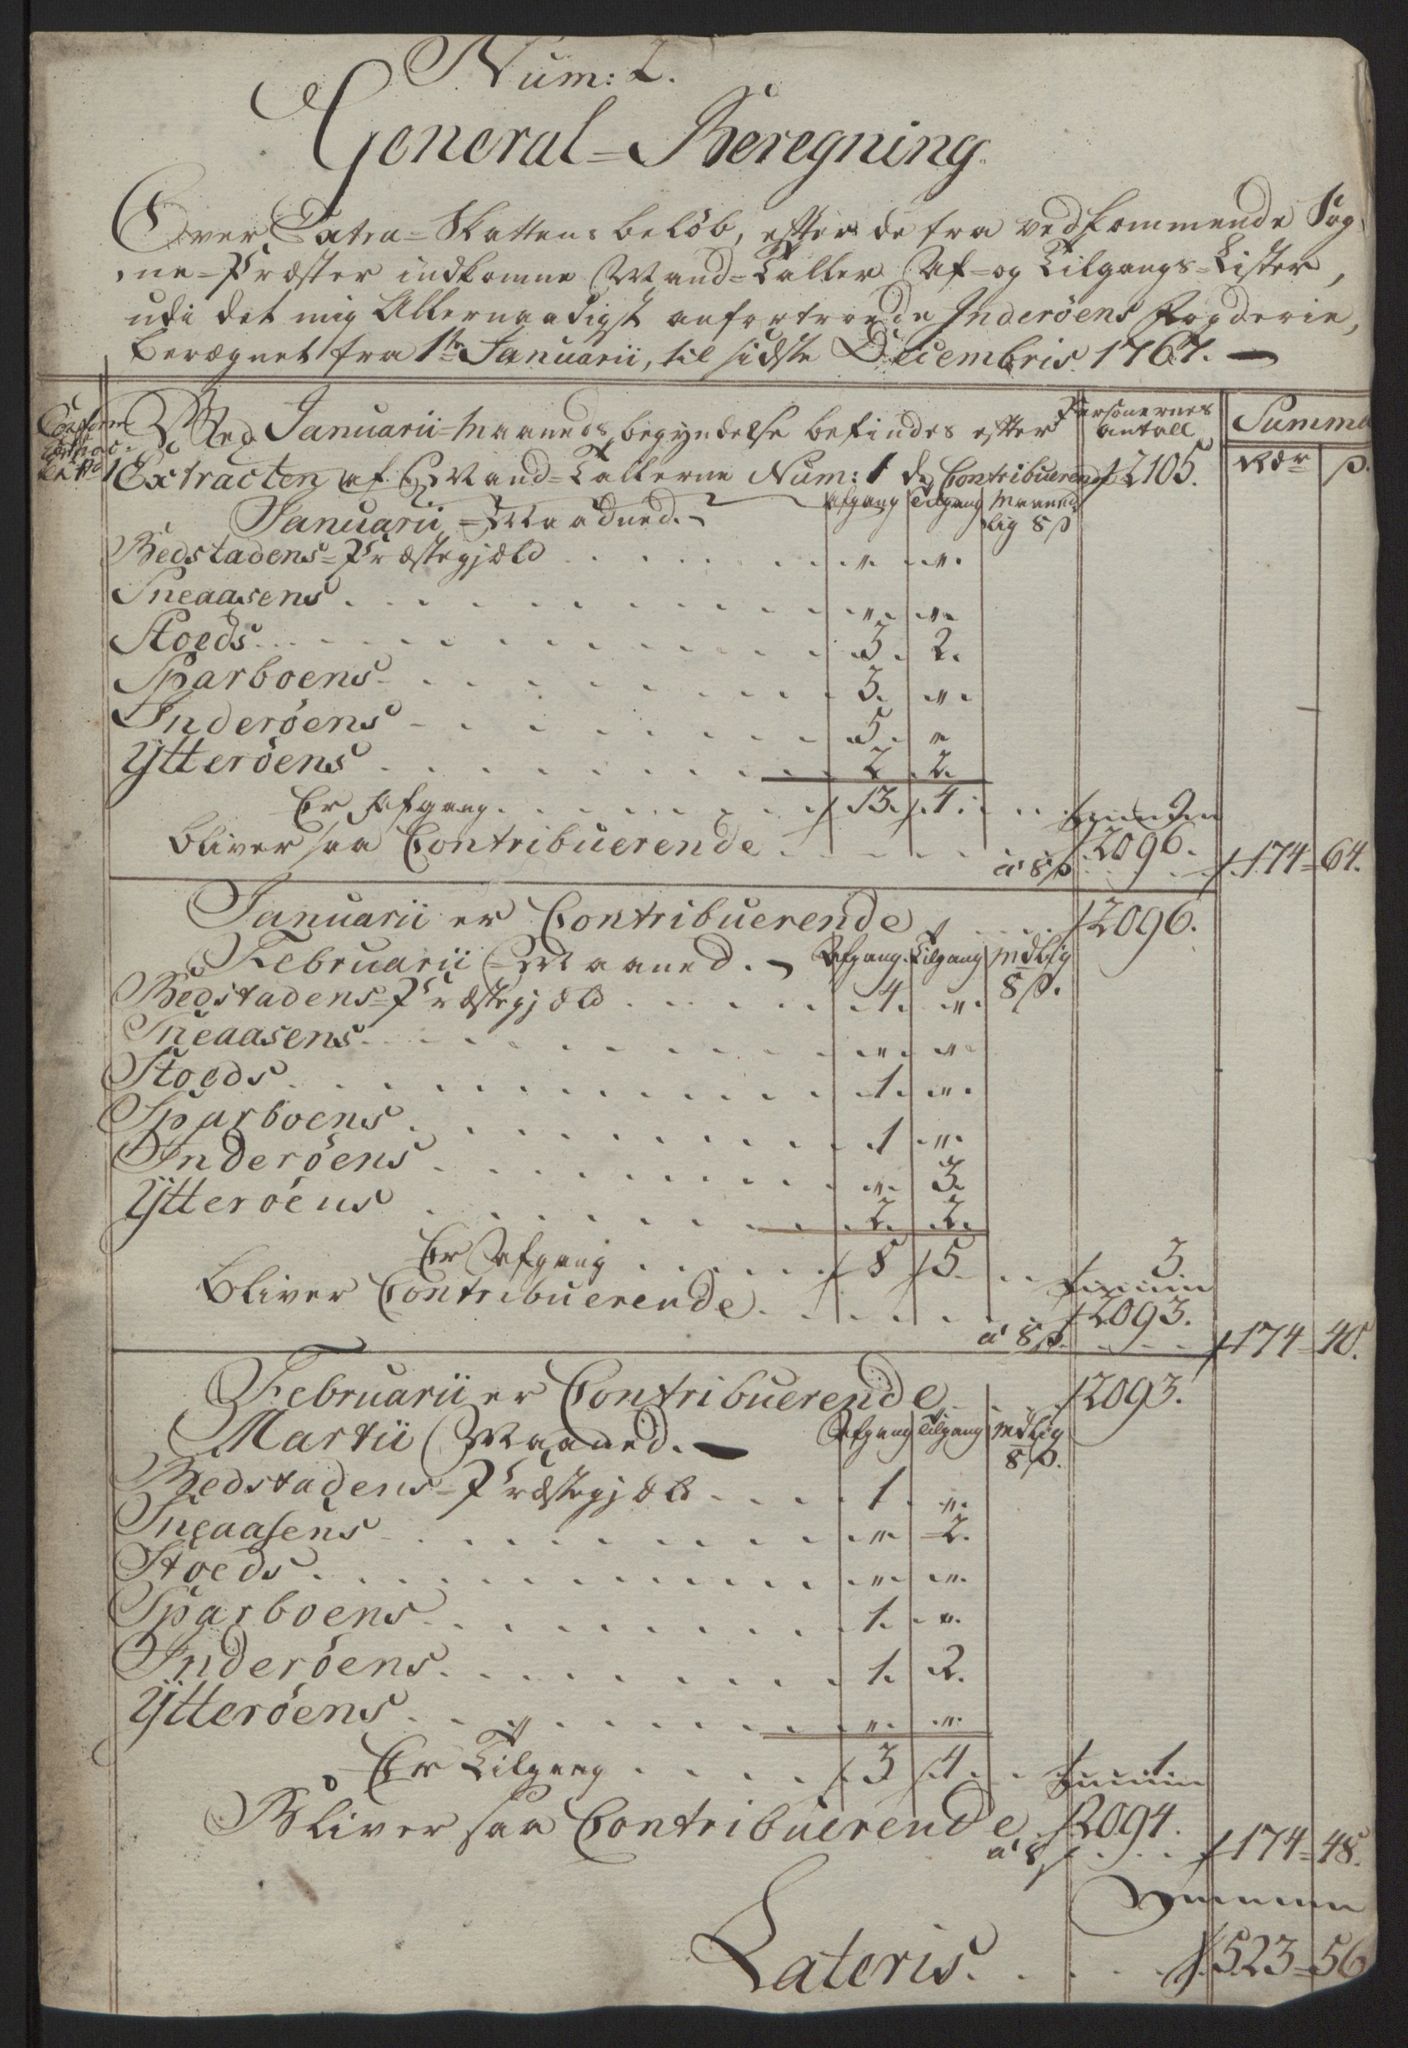 Num: 2.
General-Beregning
Over Extra-Skattens beløb, efter de fra vedkommende Sog-
ne-Præster indkomne Mand-Taller Af- og Tilgangs-Lister,
udi det mig Allernaadigst anfortroede Inderøens Fogderie,
berægnet fra 1ste Januarii, til sidste Decembris 1767.
Ved Januarii-Maaneds begyndelse befindes efter Personernes antall Summa
Extracten af Mand-Tallerne Num: 1 de Contribuerende 2105. Rdr ß.
Januarii-Maaned. Afgang Tilgang Maaned- lig 8 ß
Bedstadens-Præstegiæld . . . " . "
Sneaasens . . . " . "
Stoeds . . . 3. 2.
Sparboens . . . 3. "
Inderøens . . . 5. "
Ytterøens . . . 2 2.
Er Afgang . . . 13. 4. . . 9
bliver saa Contribuerende . . . 2096.
a 8 ß . . . 174 = 64.
Januarii er Contribuerende . . . 2096.
Februarii Maaned. Afgang Tilgang Mdlig 8 ß.
Bedstadens-Præstegjæld . . . 4. "
Sneaasens . . . " . "
Stoeds . . . 1. "
Sparboens . . . 1 . "
Inderøens . . . " . 3.
Ytterøens . . . 2. 2.
Er Afgang . . . 8 5 . . 3.
bliver Contribuerende . . . 2093.
a 8 ß . . . 174 = 40.
Februarii er Contribuerende . . . 2093.
Martii Maaned. Afgang Tilgang Mdlig 8 ß.
Bedstadens-Præstegjæld . . . 1. "
Sneaasens . . . " . 2.
Stoeds . . . " . "
Sparboens . . . 1. "
Inderøens . . . 1. 2.
Ytterøens . . . " . "
Er Tilgang . . . 3 4 . . 1.
Bliver saa Contribuerende 2094.
a 8 ß . . . 174 = 48.
Summa
Lateris . . . 523 = 56